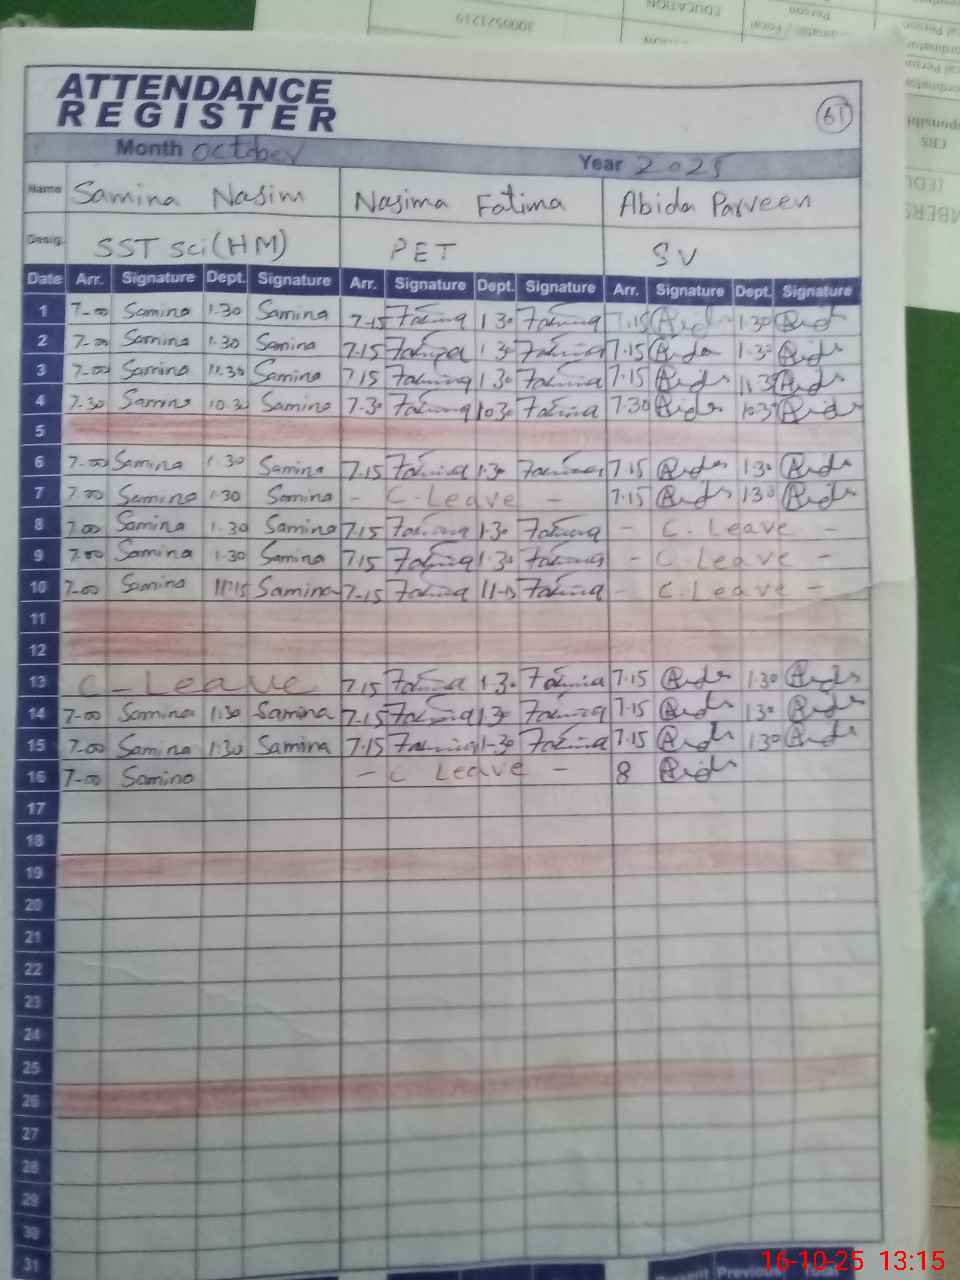 3000521219
EDUCATION
Person
ATTENDANCE
REGISTER
61
Month October Year 2025
Name Samina Nasim Nasima Fatima Abida Parveen
Desig. SST Sci (HM) PET SV
Date Arr. Signature Dept. Signature Arr. Signature Dept. Signature Arr. Signature Dept. Signature
1 7-00 Samina 1.30 Samina 7-15 Fatima 1.30 Fatima 7.15 1.30
2 7-00 Samina 1.30 Samina 7.15 Fatima 1.30 Fatima 7.15 1.30
3 7-00 Samina 11.30 Samina 7.15 Fatima 1.30 Fatima 7.15 11.30
4 7.30 Samina 10.30 Samina 7-30 Fatima 10.30 Fatima 7.30 10.30
5
6 7-00 Samina 1.30 Samina 7.15 Fatima 1.30 Fatima 7.15 1.30
7 7.00 Samina 1.30 Samina - C. Leave - 7.15 1.30
8 7.00 Samina 1.30 Samina 7.15 Fatima 1.30 Fatima - C. Leave -
9 7.00 Samina 1.30 Samina 7.15 Fatima 1.30 Fatima - C Leave -
10 7-00 Samina 11.15 Samina 7-15 Fatima 11-15 Fatima - C. Leave -
11
12
13 C - Leave 7.15 Fatima 1.30 Fatima 7.15 1.30
14 7-00 Samina 1.30 Samina 7-15 Fatima 1.30 Fatima 7.15 1.30
15 7-00 Samina 1.30 Samina 7.15 Fatima 1-30 Fatima 7.15 1.30
16 7-00 Samina - C Leave - 8
17
18
19
20
21
22
23
24
25
26
27
28
29
30
31
16-10-25 13:15